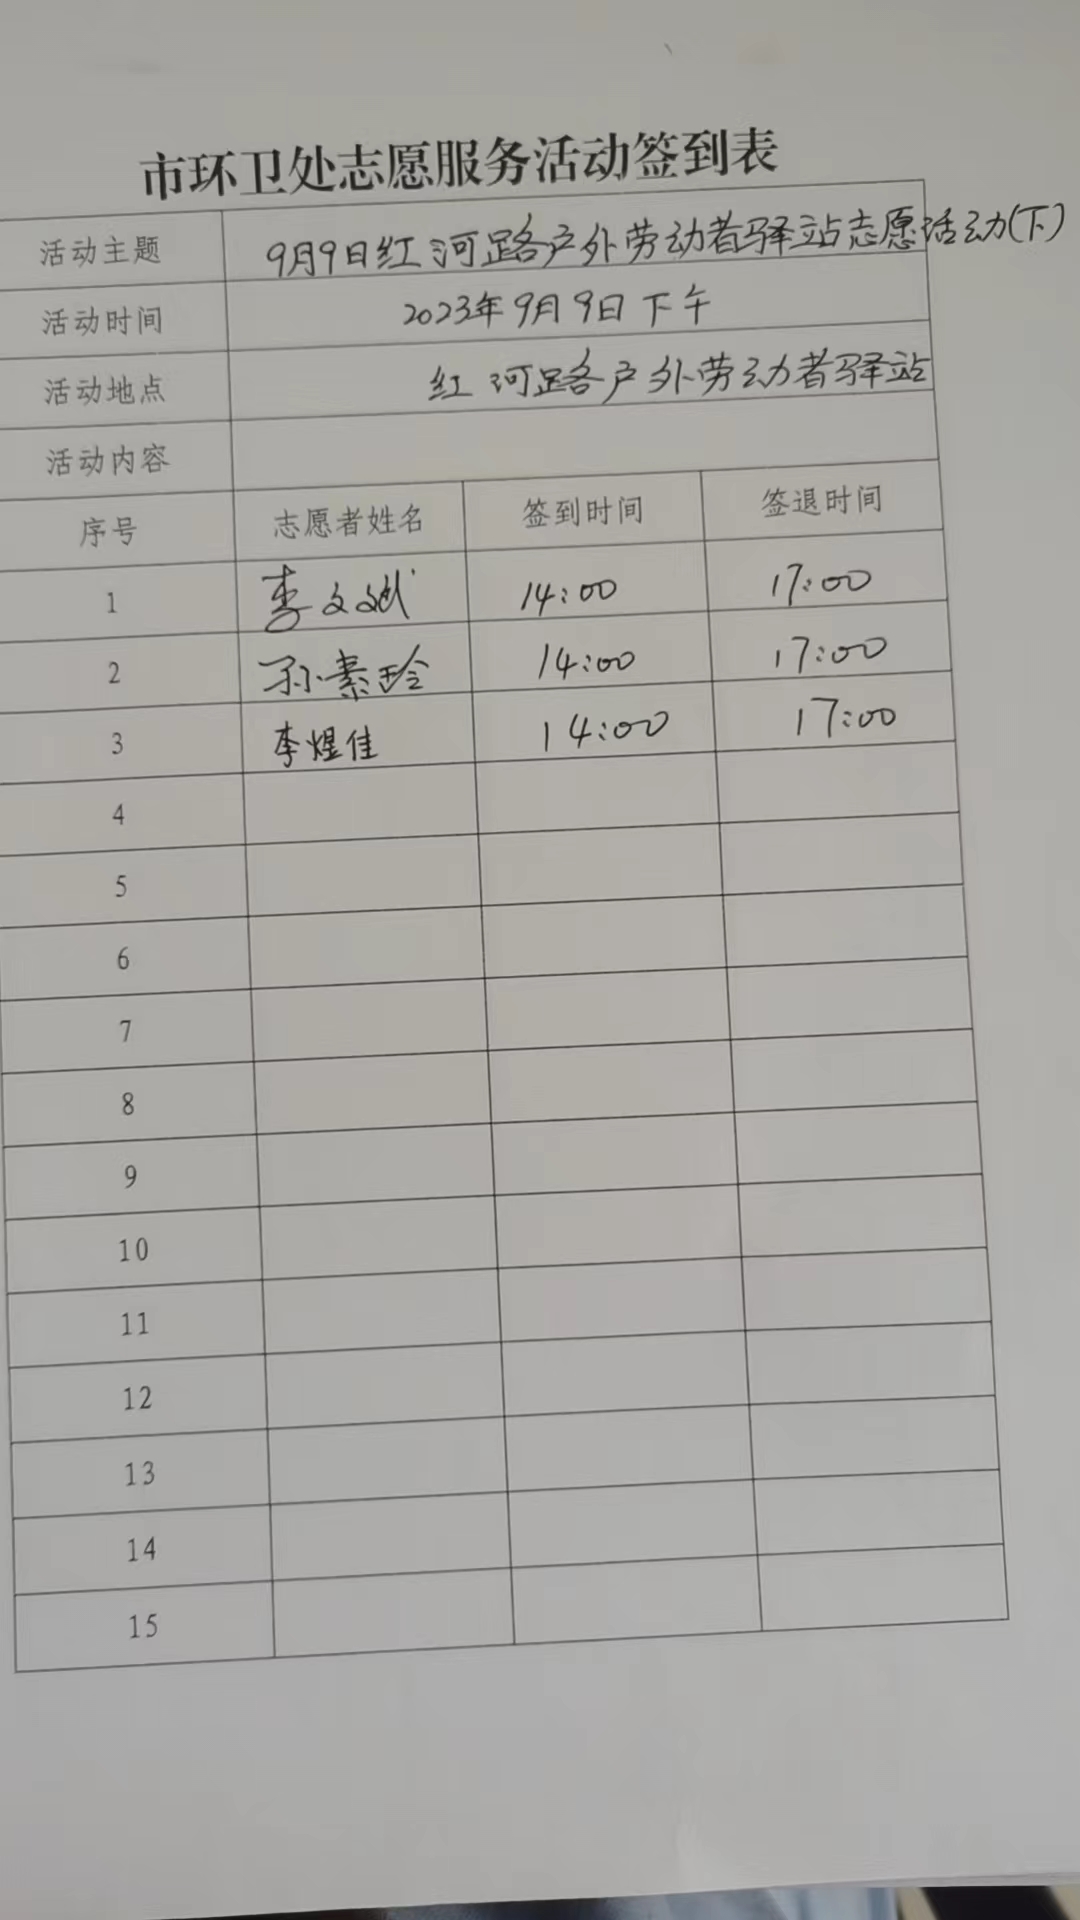 市环卫处志愿服务活动签到表
活动主题 9月9日红河路户外劳动者驿站志愿活动(下)
活动时间 2023年9月9日下午
活动地点 红河路户外劳动者驿站
活动内容
序号 志愿者姓名 签到时间 签退时间
1 李文斌 14:00 17:00
2 孙素玲 14:00 17:00
3 李煜佳 14:00 17:00
4
5
6
7
8
9
10
11
12
13
14
15